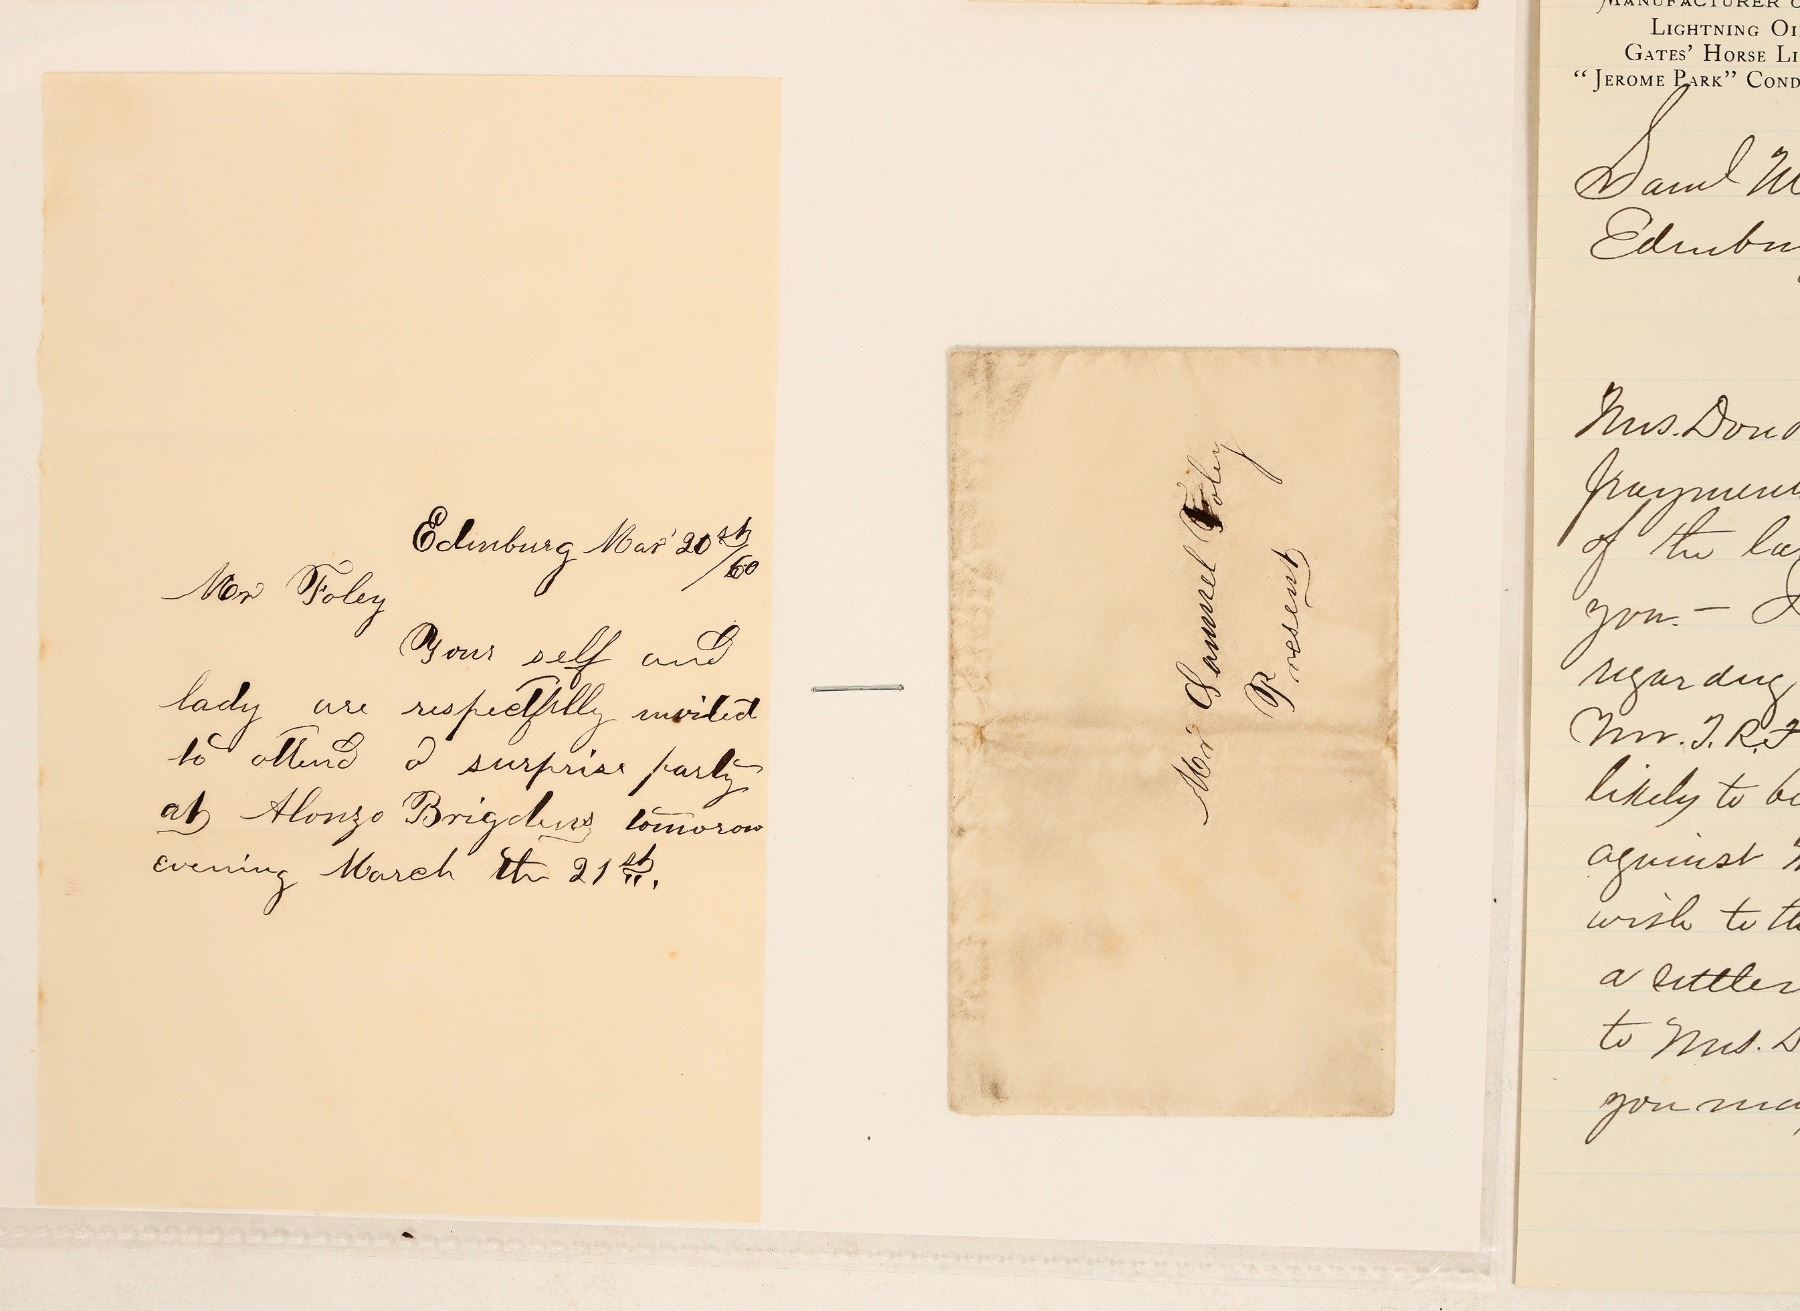 Edinburg Mar 20th
/60
Mr Foley
Your self and
lady are respectfully invited
to attend a surprise party
at Alonzo Brigdens tomorow
evening March the 21st.
Mr Samuel Foley
Present
MANUFACTURER
LIGHTNING
GATES' HORSE
"JEROME PARK"
Saml
Mrs.
of the
you. —
regarding
Mr. T. R.
likely to
against
wish to
a
to Mrs. D
you